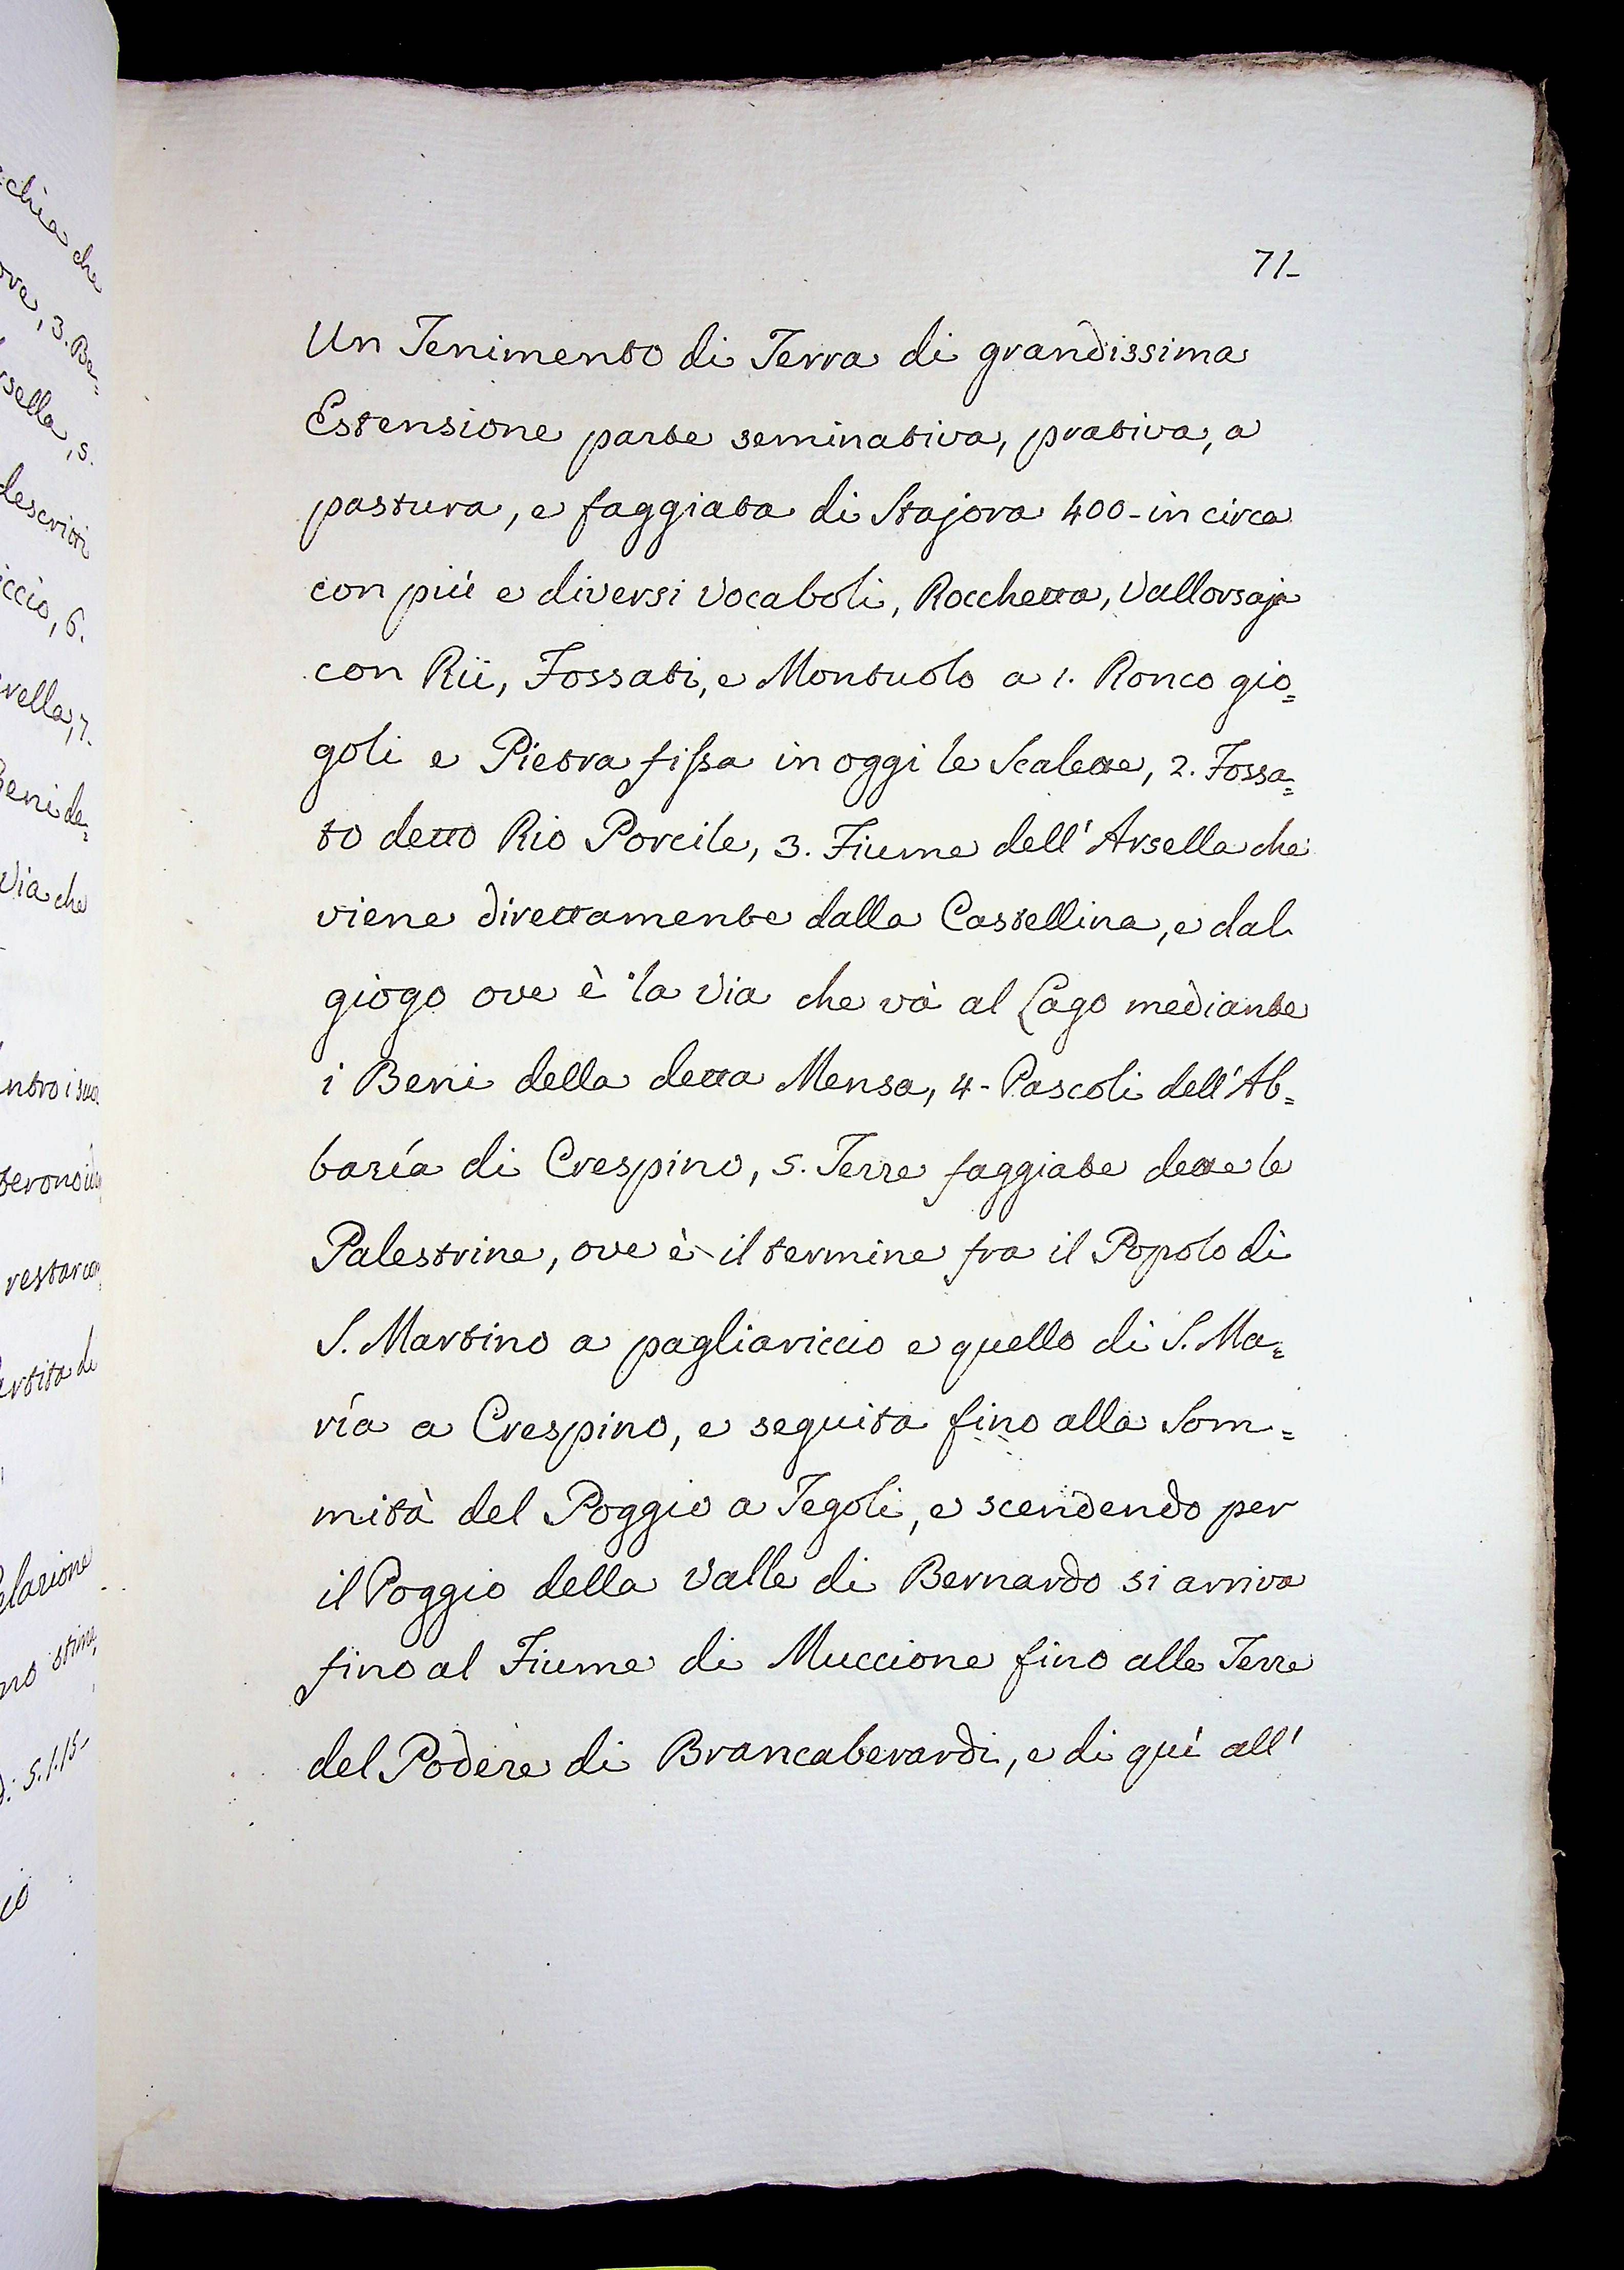 chia che
ove, 3. Be=
rsella, 5.
descritti
iccio, 6.
rella, 7.
Beni de=
Via che
ntro i suoi
restar con
artita di
elazione
5.1.15-
71-
Un Tenimento di Terra di grandissima
Estensione parte seminativa, prativa, a
pastura, e faggiata di Stajora 400- in circa
con più e diversi Vocaboli, Rocchetta, Vallorsaja
con Rii, Fossati, e Montuolo a 1. Ronco gio=
goli e Pietra fissa in oggi le Scalette, 2. Fossa=
to detto Rio Porcile, 3. Fiume dell' Arsella che
viene direttamente dalla Castellina, e dal
giogo ove è la Via che và al Lago mediante
i Beni della detta Mensa, 4- Pascoli dell' Ab=
bazía di Crespino, 5. Terre faggiate dette le
Palestrine, ove è il termine fra il Popolo di
S. Martino a pagliariccio e quello di S. Ma=
ría a Crespino, e seguita fino alla Som=
mità del Poggio a Tegoli, e scendendo per
il Poggio della Valle di Bernardo si arriva
fino al Fiume di Muccione fino alle Terre
del Podere di Brancaberardi, e di quì all'